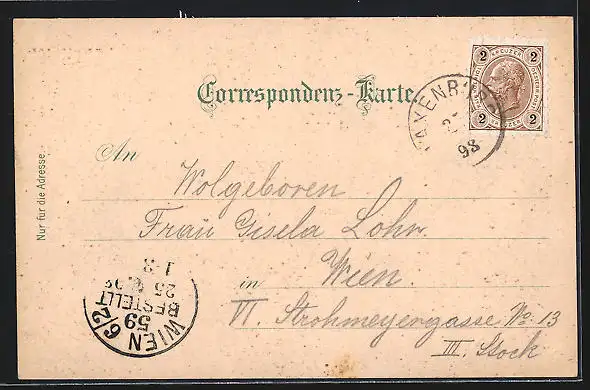 Correspondenz-Karte
2 KREUZER 2
2 KREUZER 2
LAXENBURG
98
An
Wolgeboren
Frau Gisela Lohr.
in Wien.
VI. Strohmeyergasse No. 13
III. Stock
Nur für die Adresse.
WIEN 6/2
59
BESTELLT